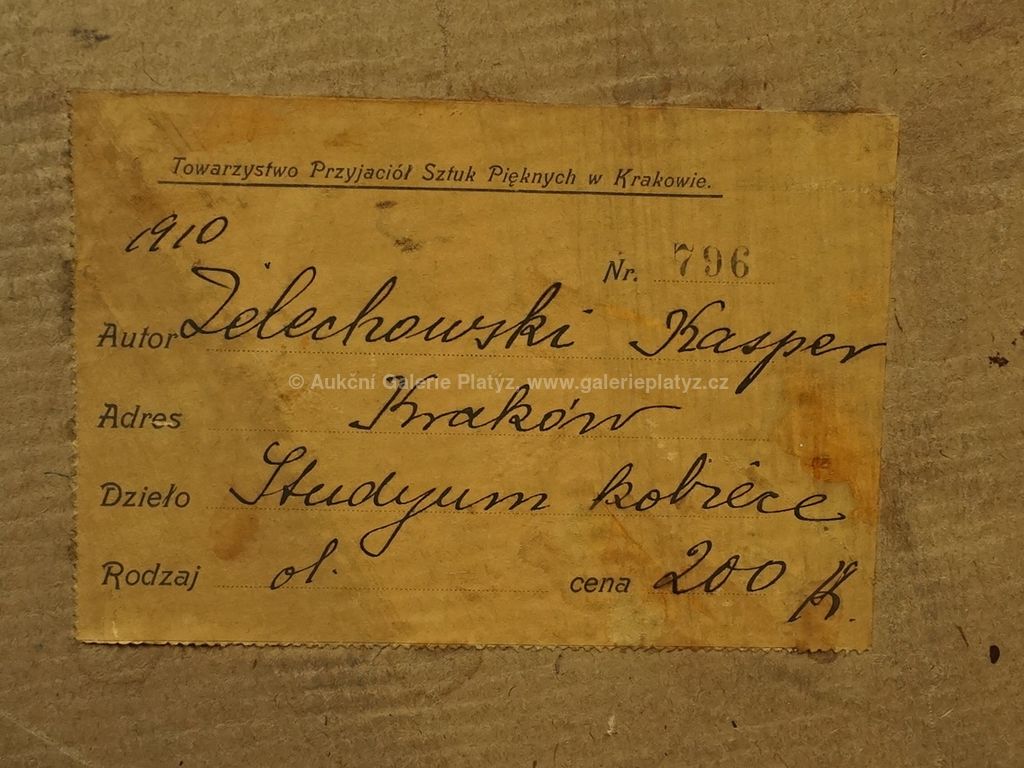 Towarzystwo Przyjaciół Sztuk Pięknych w Krakowie.
1910
Nr. 796
Autor Żelechowski Kasper
© Aukční Galerie Platýz, www.galerieplatyz.cz
Adres Kraków
Dzieło Studyum kobiéce
Rodzaj ol. cena 200 K.